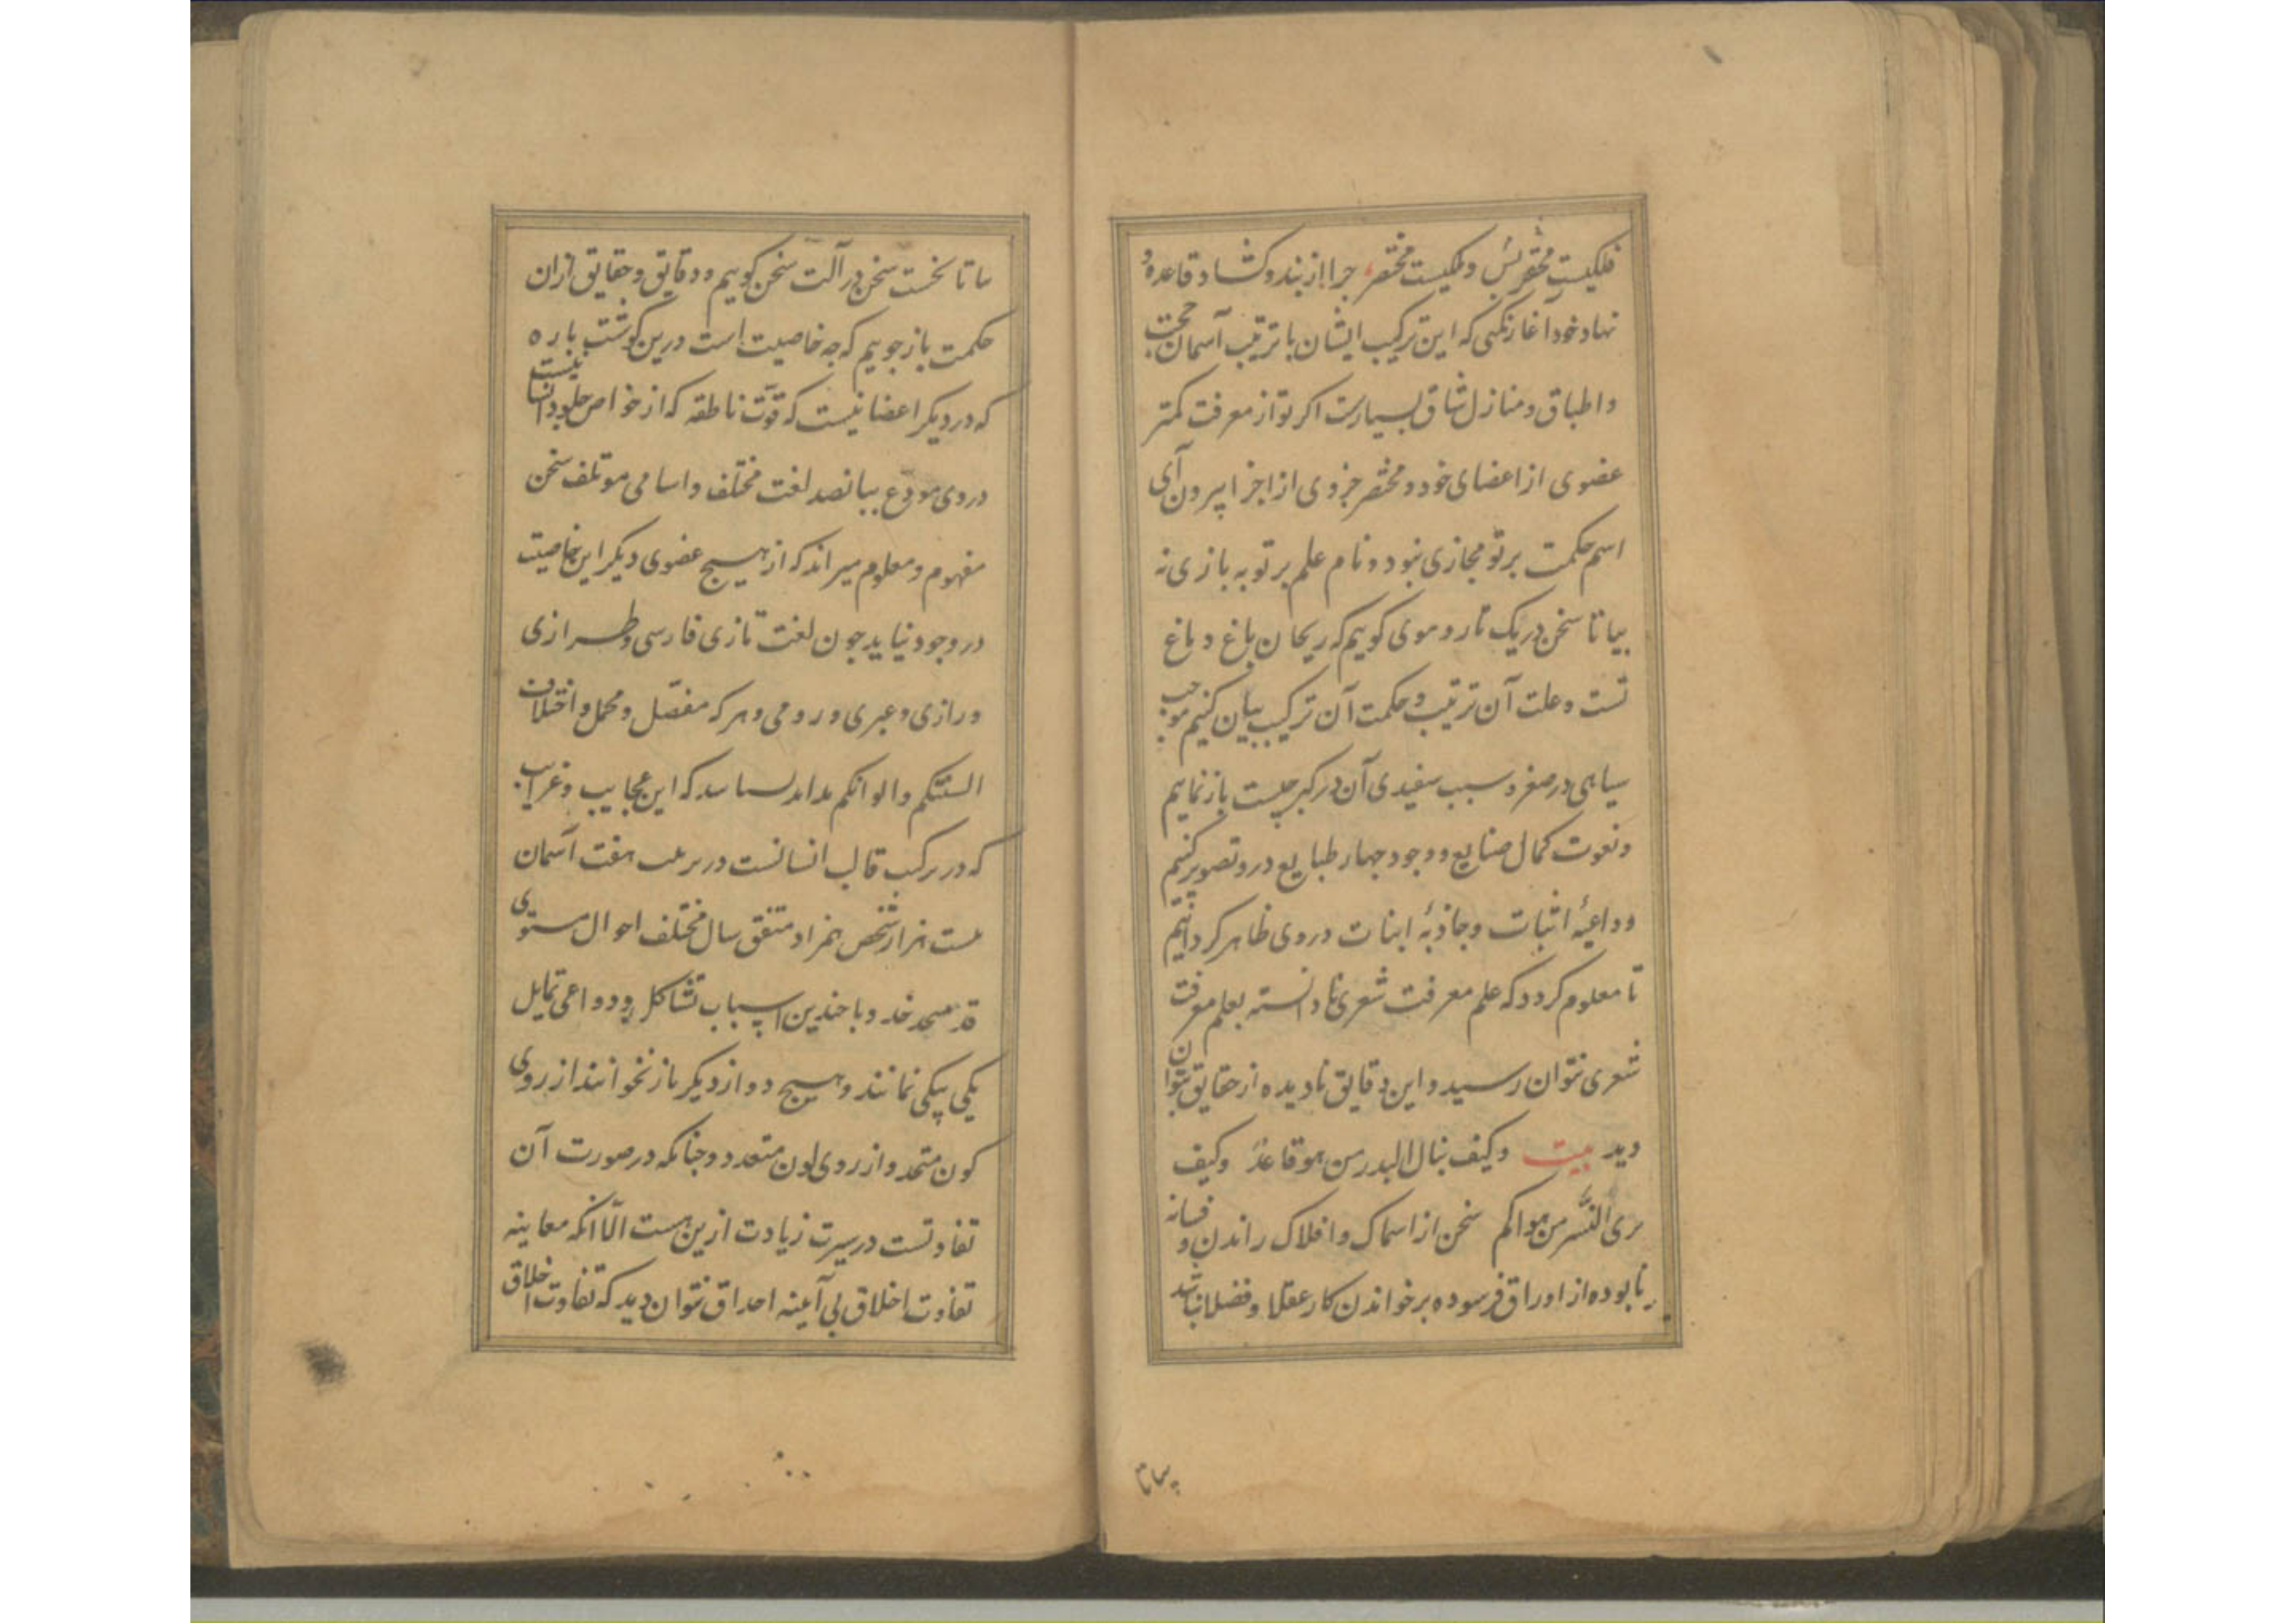 فلکیست محقر پس و ملکیست مختصر چرا از بند و کشاد قاعده و
نهاد خود آغاز نکنی که این ترکیب ایشان با ترتیب آسمان حجت
و اطباق و منازل شاق بسیارست اکر تو از معرفت کمتر
عضوی از اعضای خود و مختصر جزوی از اجزا بیرون آی
اسم حکمت بر تو مجازی نبود و نام علم بر تو به بازی نه
بیا تا سخن در یک تار و موی کوییم که ریحان باغ دماغ
تست و علت آن ترتیب و حکمت آن ترکیب بیان کنیم موجب
سیاهی در صغر و سبب سفیدی آن در کبر چیست باز نماییم
و نعوت کمال صنایع و وجود جهار طبایع در و تصویر کنیم
و داعیهٔ اثبات و جاذبهٔ ابنات در وی ظاهر کردانیم
تا معلوم کردد که علم معرفت شعری نا دانسته بعلم معرفت
شعری نتوان رسید و این دقایق نادیده از حقایق نتوان
دید بیت وکیف ینال البدر من هو قاعد وکیف
یری النسر من هواکم سخن از اسماک و افلاک راندن و فسانه
نابوده از اوراق فرسوده بر خواندن کار عقلا و فضلا نباشد
بیا تا
ما تا نخست سخن در آلت سخن کوییم و دقایق و حقایق ازان
حکمت باز جوییم که چه خاصیت است درین کوشت باره
که در دیکر اعضا نیست که قوّت ناطقه که از خواص جلود انسانیست
در وی مودع ببانصد لغت مختلف و اسامی موتلف سخن
مفهوم و معلوم میراند که از هیچ عضوی دیکر این خاصیت
در وجود نیاید جون لغت تازی فارسی و طرازی
و رازی و عبری و رومی و هر که مفصّل و مجمل و اختلاف
السنتکم و الوانکم که این عجایب و غرایب
که در ترکیب قالب انسانست در هفت آسمان
نیست هزار شخص همزاد متفق سال مختلف احوال مستوی
قد متحد خد و با جندین اسباب تشاکل و دواعی تمایل
یکی بیکی نمانند و هیچ دو از دیکر باز نخوانند از روی
کون متحد و از روی لون متعدد و جنانکه در صورت آن
تفاوتست در سیرت زیادت ازین هست الّا انکه معاینه
تفاوت اخلاق بی آیینه احداق نتوان دید که تفاوت اخلاق